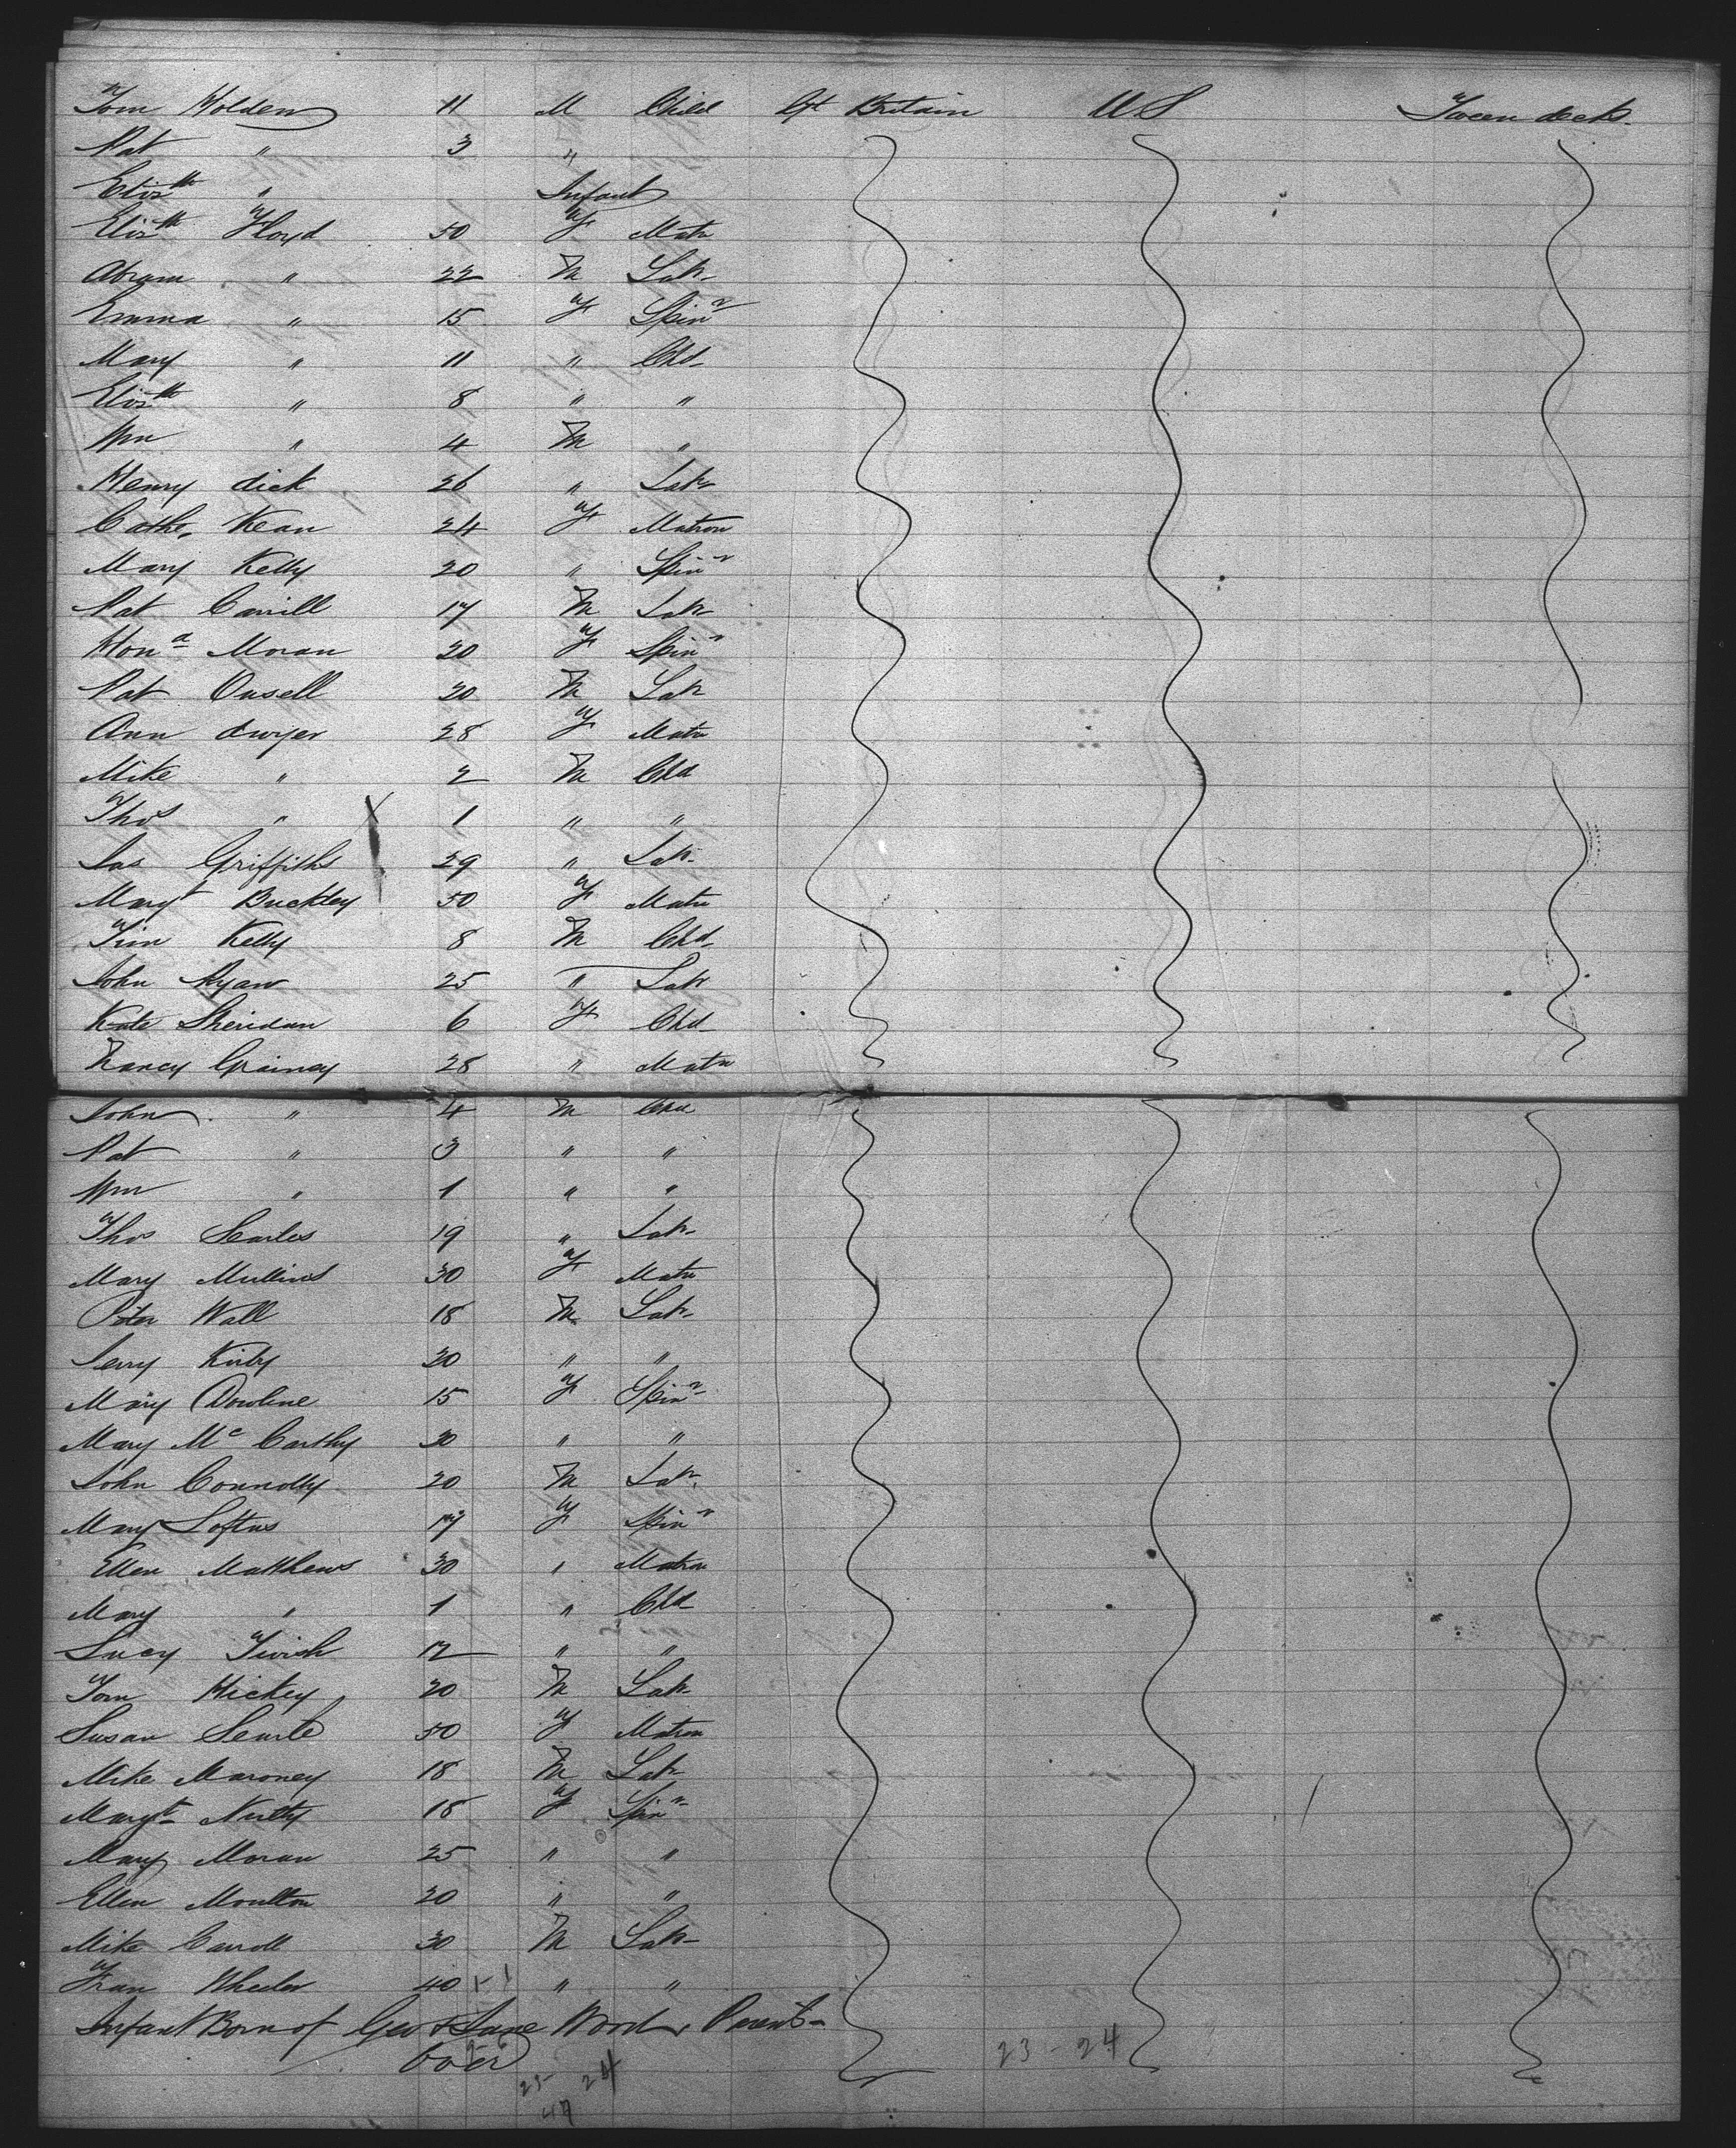 Tom Holden 11 M Child Gt Britain U S Tween decks
Pat " 3 "
Elizth " Infant
Elizth Floyd 50 F Matn
Abram " 22 M Labr
Emma " 15 F Spinr
Mary " 11 " Chd
Elizth " 8 " "
Wm " 4 M "
Henry dick 26 " Labr
Cathe. Kean 24 F Matron
Mary Kelly 20 " Spinr
Pat Carrill 17 M Labr
Hona Moran 20 F Spinr
Pat 20 M Labr
Ann dwyer 28 F Matn
Mike " 2 M Chd
Thos " X 1 " "
Jas Griffiths 29 " Labr
Margt Buckley 50 F Matn
Tim Kelly 8 M Chd
John Ryan 25 " Labr
Kate Sheridan 6 F Chd
Nancy Grainey 28 " Matn
John " 4 M Chd
Pat " 3 " "
Wm " 1 " "
Thos Searles 19 " Labr
Mary Mullins 30 F Matn
Peter Wall 18 M Labr
Jerry Kirby 20 " "
Mary Dowline 15 F Spinr
Mary Mc Carthy 20 " "
John Connolly 20 M Labr
Mary Loftus 17 F Spinr
Ellen Matthews 30 " Matron
Mary " 1 " Chd
Lucy 12 " "
Tom Hickey 20 M Labr
Susan Searle 50 F Matron
Mike Maroney 18 M Labr
Margt 18 F Spinr
Mary Moran 25 " "
Ellen Moulton 20 " "
Mike Carroll 30 M Labr
Fran Wheeler 40 " "
Infant Born of Geo & Jane Wood Parents
over 23 - 24
25 24
47